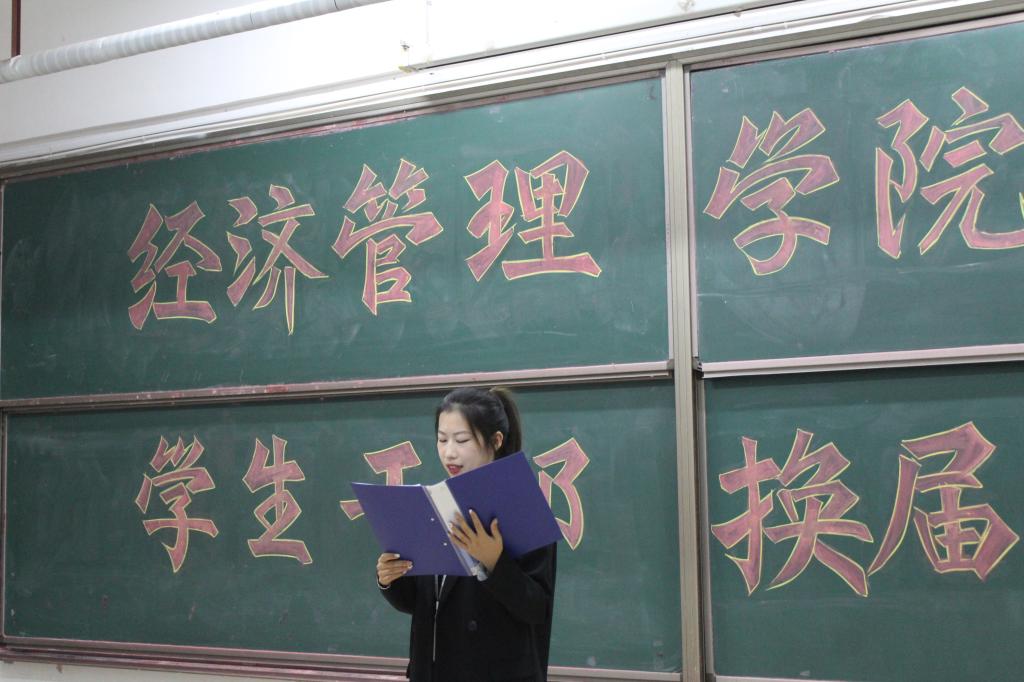 经济管理学院
学生干部换届